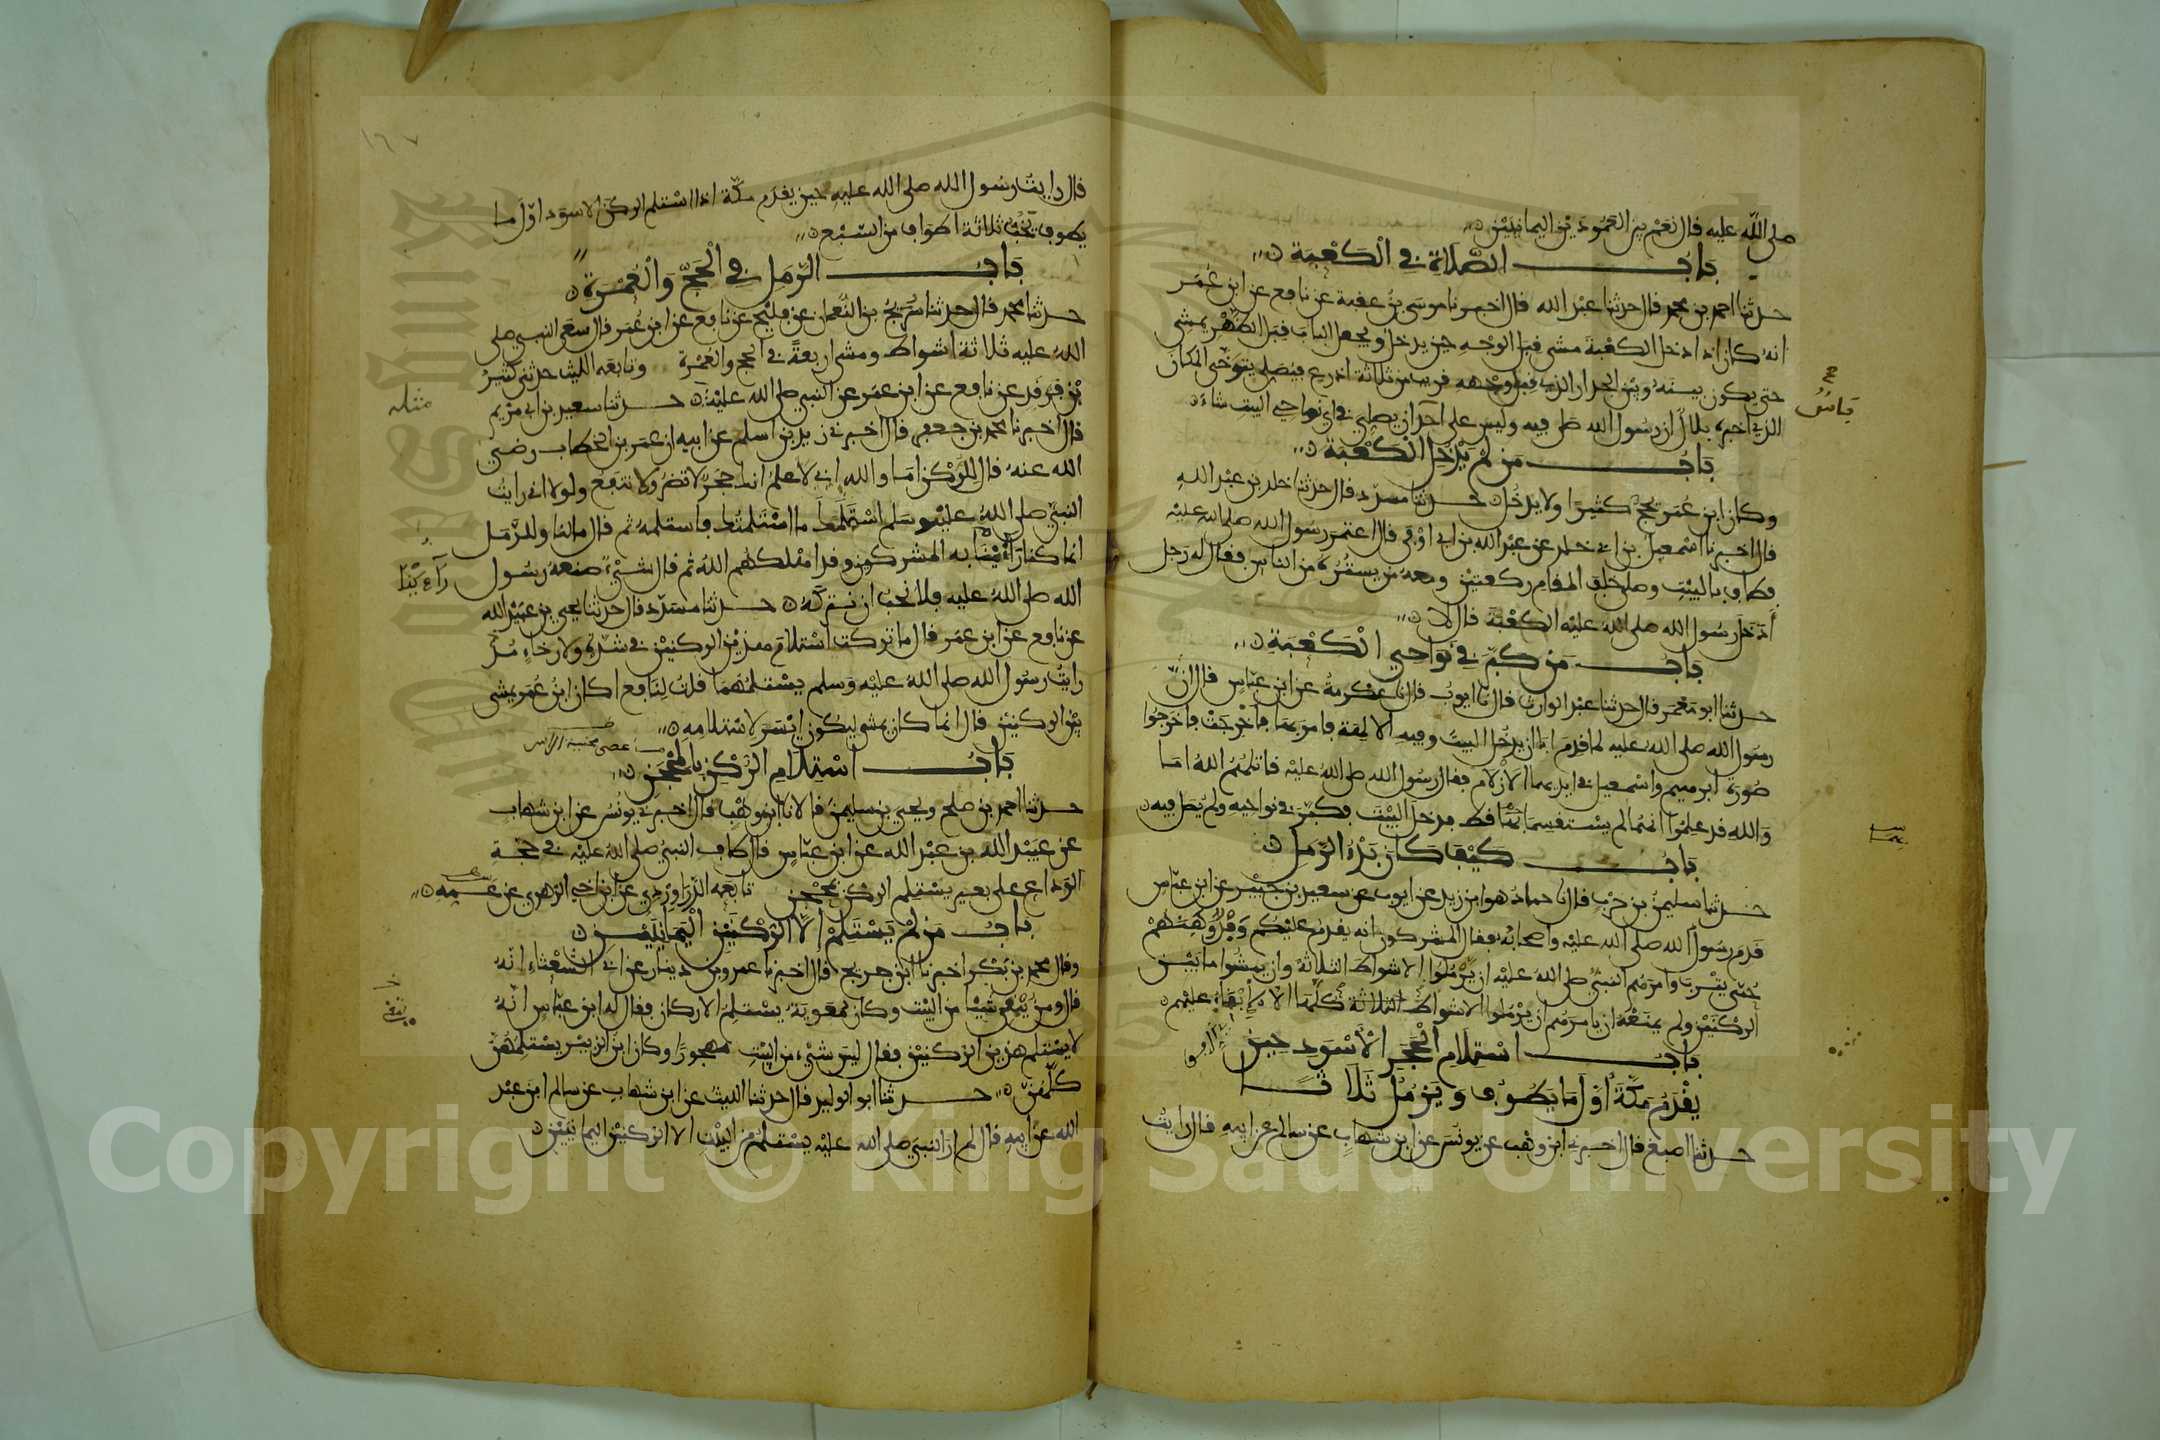 صلى الله عليه قال نعم بين العمودين اليمانيين
باب الصلاة في الكعبة
حدثنا احمد بن محمد قال حدثنا عبد الله قال اخبرنا موسى بن عقبة عن نافع عن ابن عمر
انه كان اذا دخل الكعبة مشى قبل الوجه حين يدخل ويجعل الباب قبل الظهر يمشي
حتى يكون بينه وبين الجدار الذي قبل وجهه قريب من ثلاثة اذرع فيصلي يتوخى المكان
الذي اخبره بلال ان رسول الله صلى فيه وليس على احد ان يصلي في اي نواحي البيت شاء
باس
باب من لم يدخل الكعبة
وكان ابن عمر يحج كثيرا ولا يدخل حدثنا مسدد قال حدثنا خالد بن عبد الله
قال اخبرنا اسمعيل بن ابي خالد عن عبد الله بن ابي اوفى قال اعتمر رسول الله صلى الله عليه
فطاف بالبيت وصلى خلف المقام ركعتين ومعه من يستره من الناس فقال له رجل
أدخل رسول الله صلى الله عليه الكعبة قال لا
باب من كبر في نواحي الكعبة
حدثنا ابو معمر قال حدثنا عبد الوارث قال نا ايوب قال نا عكرمة عن ابن عباس قال ان
رسول الله صلى الله عليه لما قدم ابا ان يدخل البيت وفيه الالهة فامر بها فاخرجت فاخرجوا
صورة ابرهيم واسمعيل في ايديهما الازلام فقال رسول الله صلى الله عليه قاتلهم الله اما
والله قد علموا انهما لم يستقسما بها قط فدخل البيت فكبر في نواحيه ولم يصل فيه
باب كيف كان بدء الرمل
حدثنا سليمن بن حرب قال نا حماد هو ابن زيد عن ايوب عن سعيد بن جبير عن ابن عباس
قدم رسول الله صلى الله عليه واصحابه فقال المشركون انه يقدم عليكم وقد وهنتهم
حمى يثرب وامرهم النبي صلى الله عليه ان يرملوا الاشواط الثلاثة وان يمشوا ما بين
الركنين ولم يمنعه ان يامرهم ان يرملوا الاشواط الثلاثة كلها الا الابقاء عليهم
باب استلام الحجر الاسود حين
يقدم مكة اول ما يطوف ويرمل ثلاثا
حدثنا اصبغ قال اخبرني ابن وهب عن يونس عن ابن شهاب عن سالم عن ابيه قال رايت
١٦٧
قال رايت رسول الله صلى الله عليه حين يقدم مكة اذا استلم الركن الاسود اول ما
يطوف يخب ثلاثة اطواف من السبع
باب الرمل في الحج والعمرة
حدثنا محمد قال حدثنا سريج بن النعمان عن فليح عن نافع عن ابن عمر قال سعى النبي صلى
الله عليه ثلاثة اشواط ومشى اربعة في الحج والعمرة وتابعه الليث حدثني كثير
بن فرقد عن نافع عن ابن عمر عن النبي صلى الله عليه حدثنا سعيد بن ابي مريم
مثله
قال اخبرنا محمد بن جعفر قال اخبرني زيد بن اسلم عن ابيه ان عمر بن الخطاب رضي
الله عنه قال للركن اما والله اني لاعلم انك حجر لا تضر ولا تنفع ولولا اني رايت
النبي صلى الله عليه وسلم استلمك ما استلمتك فاستلمه ثم قال مالنا وللرمل
انما كنا راءينا به المشركين وقد اهلكهم الله ثم قال شيء صنعه رسول
الله صلى الله عليه فلا نحب ان نتركه حدثنا مسدد قال حدثنا يحيى بن عبيد الله
عن نافع عن ابن عمر قال ما تركت استلام هذين الركنين في شدة ولا رخاء مذ
رايت رسول الله صلى الله عليه وسلم يستلمهما قلت لنافع اكان ابن عمر يمشي
بين الركنين قال انما كان يمشي ليكون ايسر لاستلامه
باب استلام الركن بالمحجن
حدثنا احمد بن صلح ويحيى بن سليمن قالا نا ابن وهب قال اخبرني يونس عن ابن شهاب
عن عبيد الله بن عبد الله عن ابن عباس قال طاف النبي صلى الله عليه في حجة
الوداع على بعير يستلم الركن بمحجن تابعه الدراوردي عن ابن اخي الزهري عن عمه
باب من لم يستلم الا الركنين اليمانيين
وقال محمد بن بكر اخبرنا ابن جريج قال اخبرنا عمرو بن دينار عن ابي الشعثاء انه
قال ومن يتقي شيئا من البيت وكان معوية يستلم الاركان فقال له ابن عباس انه
لا يستلم هذين الركنين فقال ليس شيء من البيت مهجورا وكان ابن الزبير يستلمهن
كلهن حدثنا ابو الوليد قال حدثنا الليث عن ابن شهاب عن سالم ابن عبد
الله عن ابيه قال لم ار النبي صلى الله عليه يستلم من البيت الا الركنين اليمانيين
Copyright © King Saud University